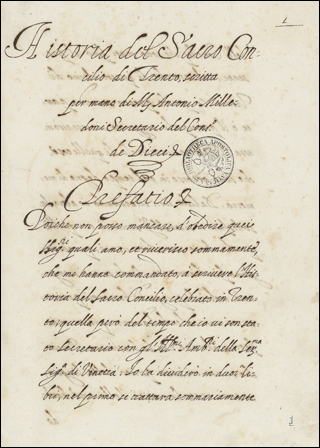 1
Historia del Sacro Con-
cilio di Trento, scritta
per mano di M. Antonio Mille
doni Secretario del Cons.
de Dieci
Prefatio
Poiche non posso mancare, d'obedire quei
Sig.ri quali amo, et riverisco sommamente,
che me hanno commandato, à scrivere l'His
toria del Sacro Concilio, celebrato in Tren
to; quella però del tempo che io vi son stato
Secretario con gl'Ill.mi Amb.ri della
Sig. di Venetia, Io la dividerò in duoi li
bri, nel primo si trattarà sommariamente